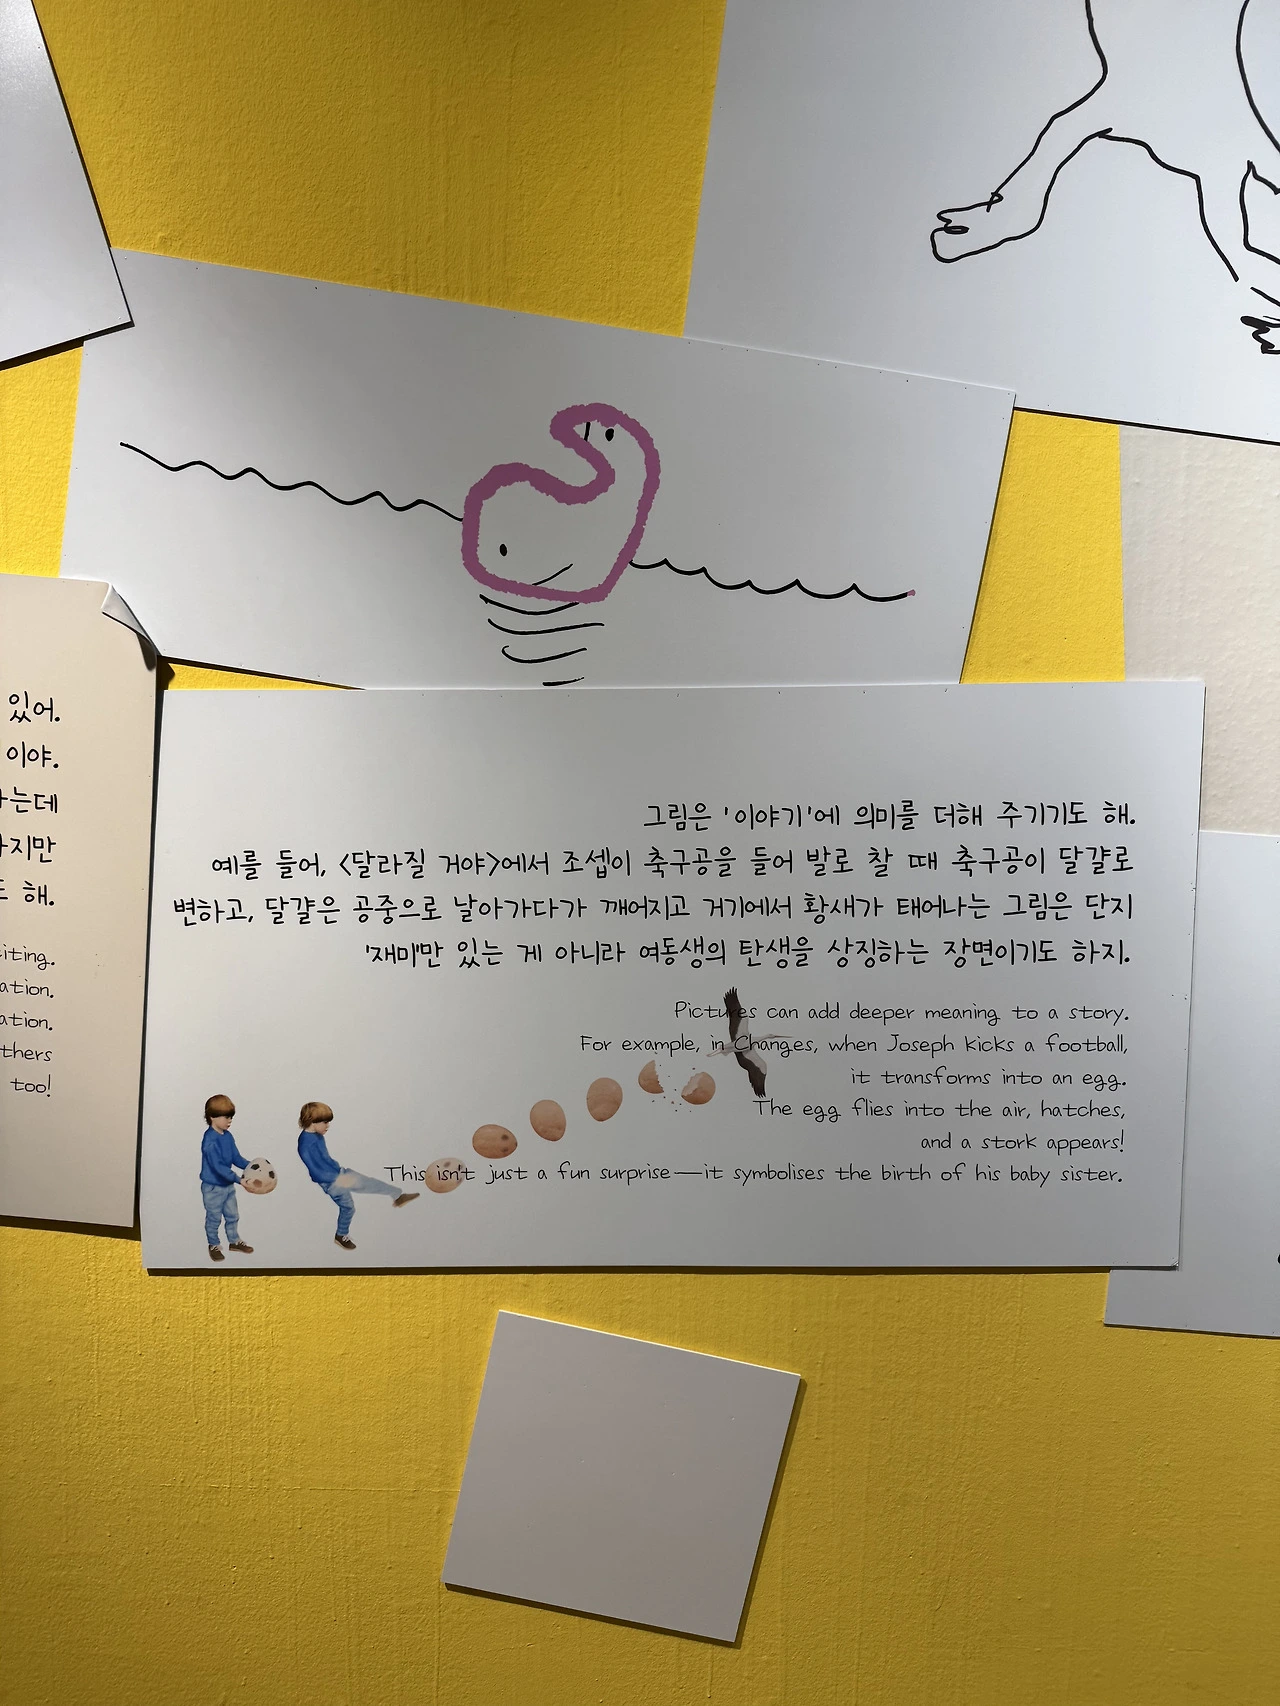 있어.
이야.
는데
지만
해.
ation.
ation.
thers
too!
그림은 '이야기'에 의미를 더해 주기기도 해.
예를 들어, <달라질 거야>에서 조셉이 축구공을 들어 발로 찰 때 축구공이 달걀로
변하고, 달걀은 공중으로 날아가다가 깨어지고 거기에서 황새가 태어나는 그림은 단지
'재미'만 있는 게 아니라 여동생의 탄생을 상징하는 장면이기도 하지.
Pictures can add deeper meaning to a story.
For example, in Changes, when Joseph kicks a football,
it transforms into an egg.
The egg flies into the air, hatches,
and a stork appears!
This isn't just a fun surprise—it symbolises the birth of his baby sister.